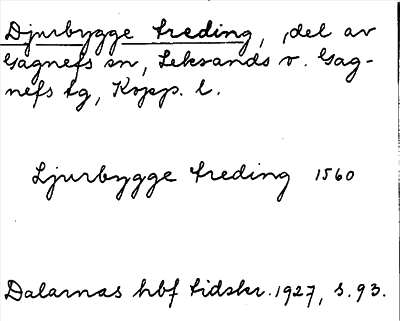 Djurbygge treding, del av
Gagnefs sn, Leksands o. Gag-
nefs tg, Kopp. l.
Ljurbygge treding 1560
Dalarnas hbf tidskr. 1927, s. 93.